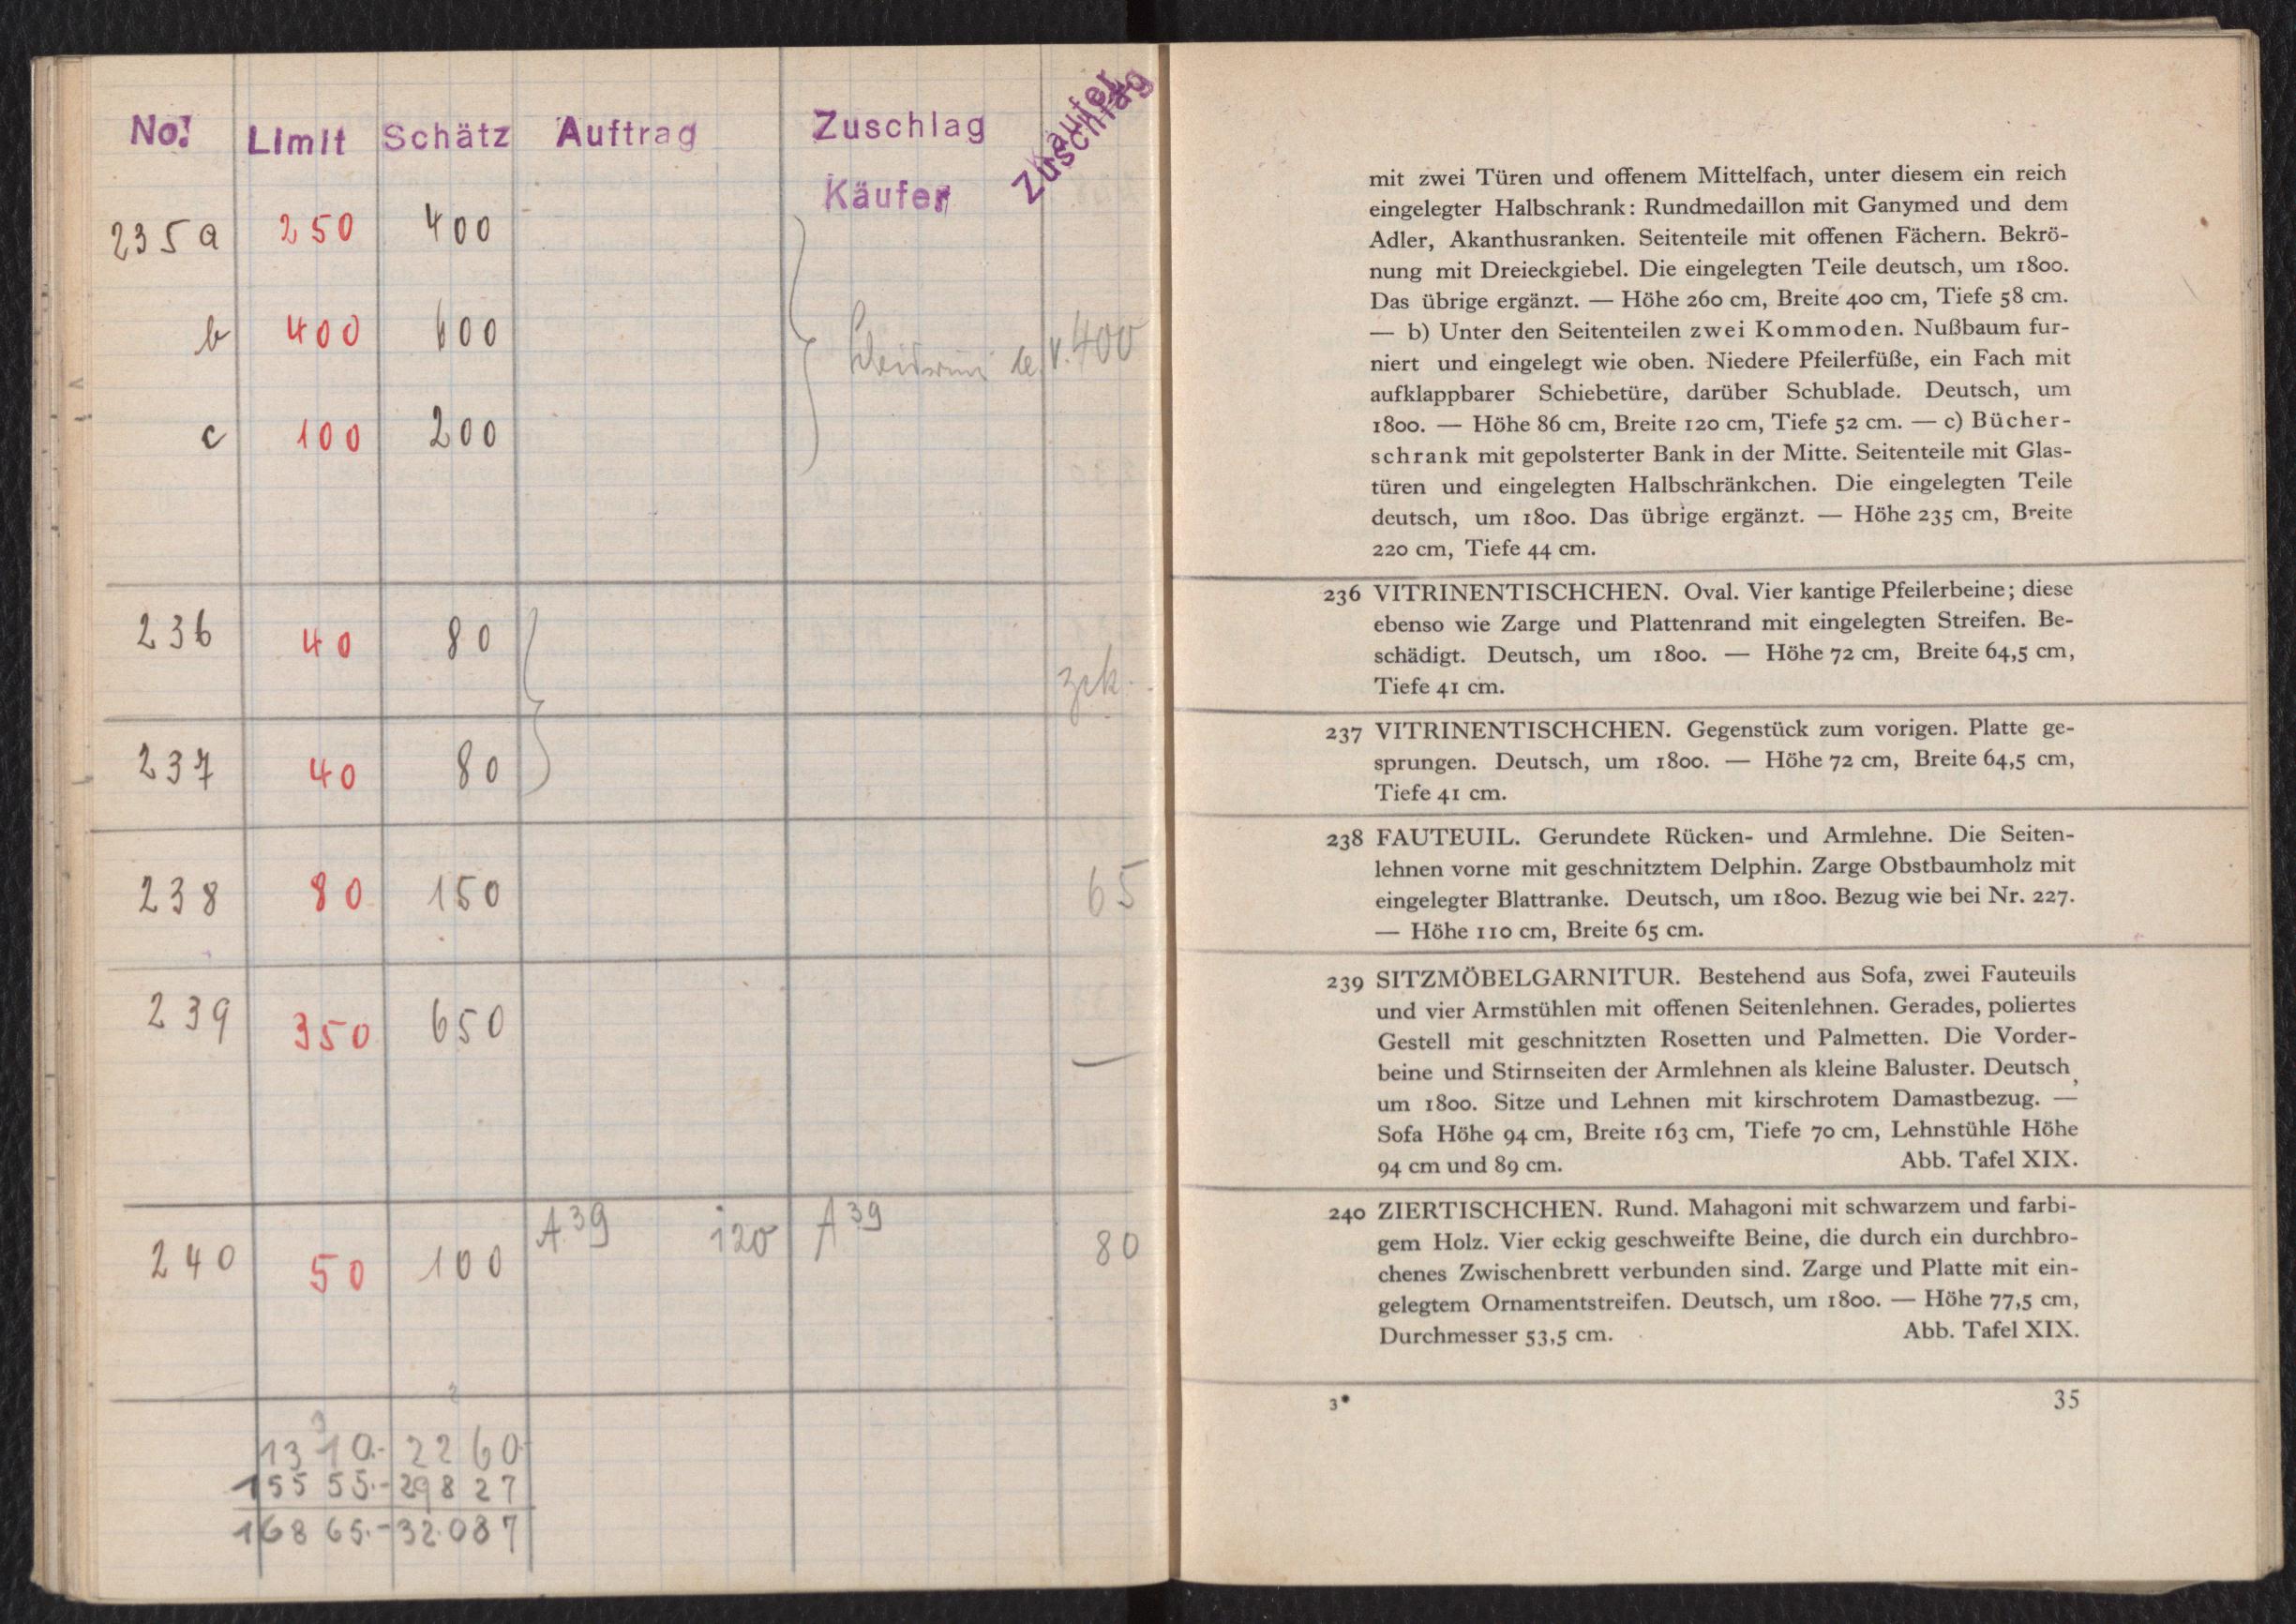 No. Limit Schätz Auftrag Zuschlag Käufer Zuschlag
Käufer
235 a 250 400
b 400 600
400
c 100 200
236 40 80
zck.
237 40 80
238 80 150 65
239 350 650 —
240 50 100 A 39 120 A 39 80
1310.- 2260.-
15555.- 29827
16865.- 32.087
mit zwei Türen und offenem Mittelfach, unter diesem ein reich
eingelegter Halbschrank: Rundmedaillon mit Ganymed und dem
Adler, Akanthusranken. Seitenteile mit offenen Fächern. Bekrö-
nung mit Dreieckgiebel. Die eingelegten Teile deutsch, um 1800.
Das übrige ergänzt. — Höhe 260 cm, Breite 400 cm, Tiefe 58 cm.
— b) Unter den Seitenteilen zwei Kommoden. Nußbaum fur-
niert und eingelegt wie oben. Niedere Pfeilerfüße, ein Fach mit
aufklappbarer Schiebetüre, darüber Schublade. Deutsch, um
1800. — Höhe 86 cm, Breite 120 cm, Tiefe 52 cm. — c) Bücher-
schrank mit gepolsterter Bank in der Mitte. Seitenteile mit Glas-
türen und eingelegten Halbschränkchen. Die eingelegten Teile
deutsch, um 1800. Das übrige ergänzt. — Höhe 235 cm, Breite
220 cm, Tiefe 44 cm.
236 VITRINENTISCHCHEN. Oval. Vier kantige Pfeilerbeine; diese
ebenso wie Zarge und Plattenrand mit eingelegten Streifen. Be-
schädigt. Deutsch, um 1800. — Höhe 72 cm, Breite 64,5 cm,
Tiefe 41 cm.
237 VITRINENTISCHCHEN. Gegenstück zum vorigen. Platte ge-
sprungen. Deutsch, um 1800. — Höhe 72 cm, Breite 64,5 cm,
Tiefe 41 cm.
238 FAUTEUIL. Gerundete Rücken- und Armlehne. Die Seiten-
lehnen vorne mit geschnitztem Delphin. Zarge Obstbaumholz mit
eingelegter Blattranke. Deutsch, um 1800. Bezug wie bei Nr. 227.
— Höhe 110 cm, Breite 65 cm.
239 SITZMÖBELGARNITUR. Bestehend aus Sofa, zwei Fauteuils
und vier Armstühlen mit offenen Seitenlehnen. Gerades, poliertes
Gestell mit geschnitzten Rosetten und Palmetten. Die Vorder-
beine und Stirnseiten der Armlehnen als kleine Baluster. Deutsch,
um 1800. Sitze und Lehnen mit kirschrotem Damastbezug. —
Sofa Höhe 94 cm, Breite 163 cm, Tiefe 70 cm, Lehnstühle Höhe
94 cm und 89 cm. Abb. Tafel XIX.
240 ZIERTISCHCHEN. Rund. Mahagoni mit schwarzem und farbi-
gem Holz. Vier eckig geschweifte Beine, die durch ein durchbro-
chenes Zwischenbrett verbunden sind. Zarge und Platte mit ein-
gelegtem Ornamentstreifen. Deutsch, um 1800. — Höhe 77,5 cm,
Durchmesser 53,5 cm. Abb. Tafel XIX.
3* 35